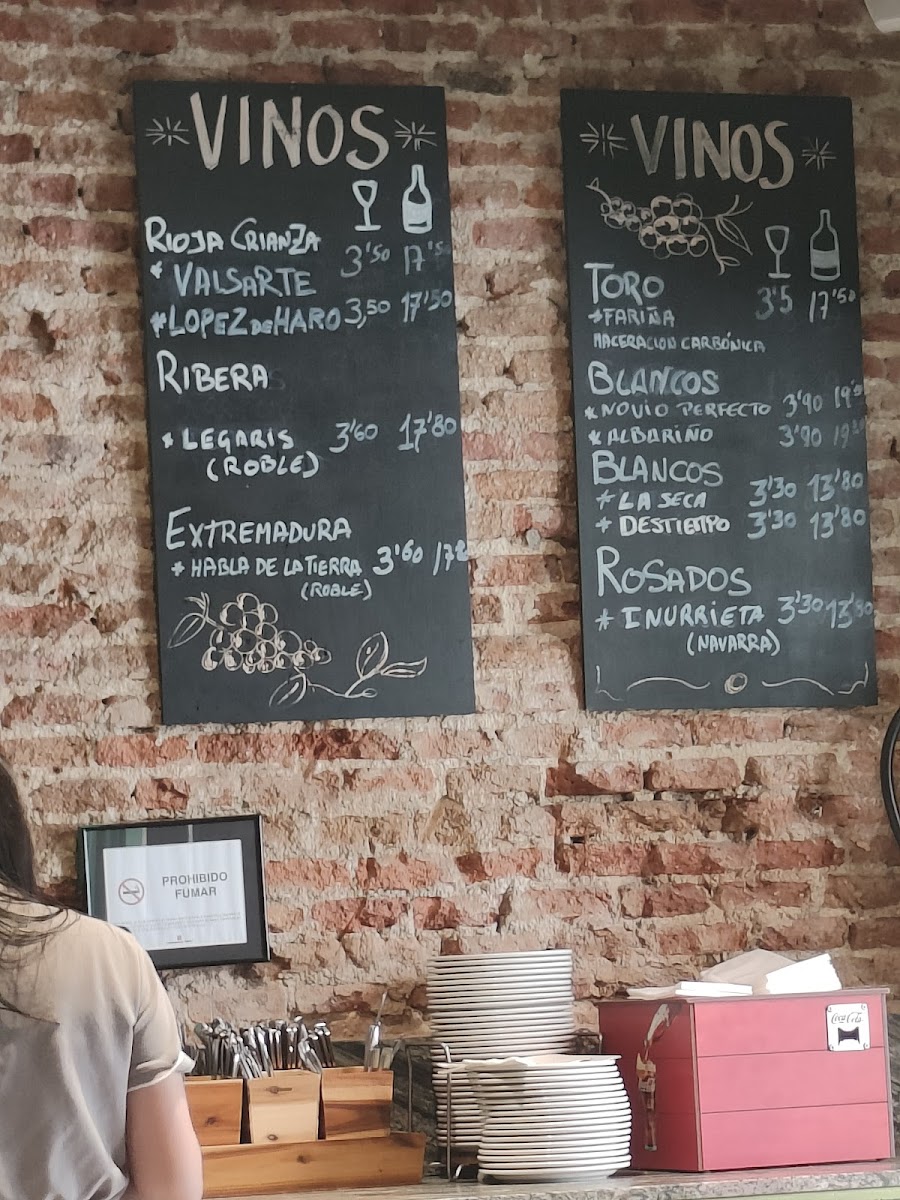 VINOS
RIOJA CRIANZA
* VALSARTE 3'50 17'50
* LOPEZ DE HARO 3,50 17'50
RIBERA
* LEGARIS 3'60 17'80
(ROBLE)
EXTREMADURA
* HABLA DE LA TIERRA 3'60
(ROBLE)
VINOS
TORO 3'5 17'50
* FARIÑA
MACERACION CARBÓNICA
BLANCOS
* NOVIO PERFECTO 3'90
* ALBARIÑO 3'90
BLANCOS
* LA SECA 3'30 13'80
* DESTIEMPO 3'30 13'80
ROSADOS
* INURRIETA 3'30 13'80
(NAVARRA)
PROHIBIDO
FUMAR
Coca-Cola